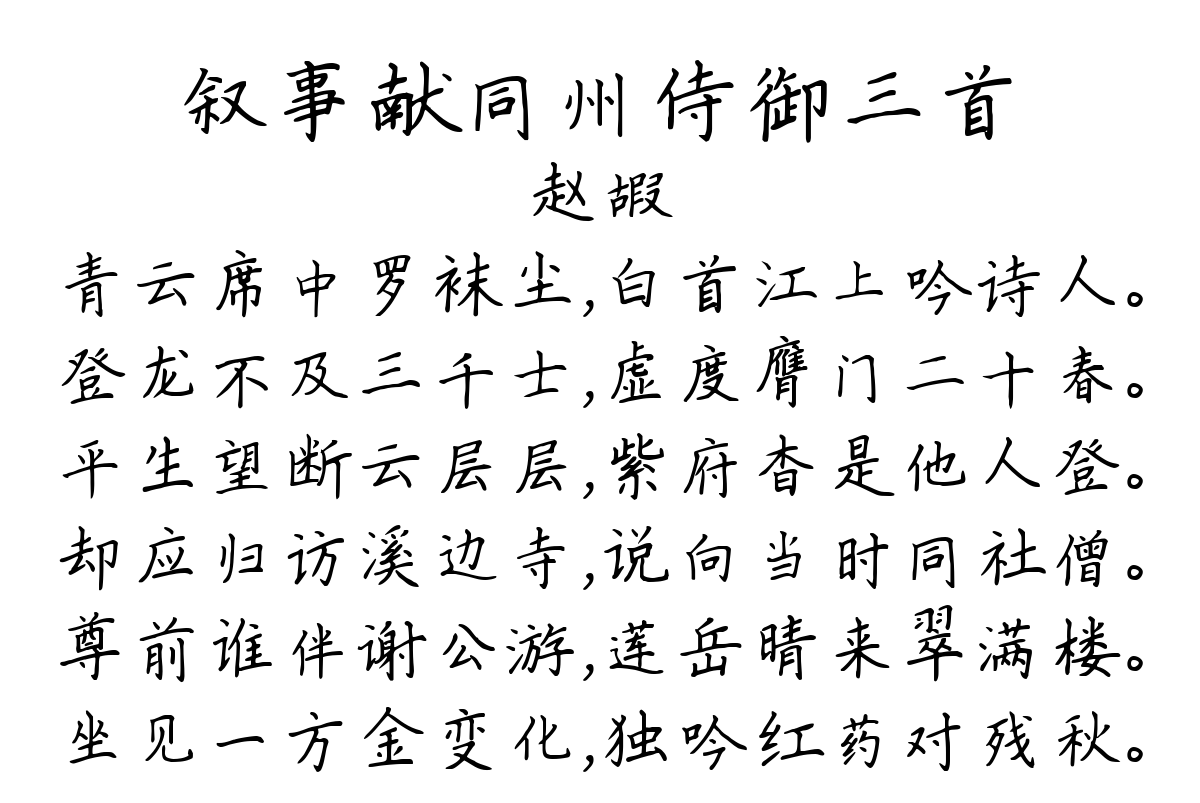 叙事献同州侍御三首
赵嘏
青云席中罗袜尘,白首江上吟诗人。
登龙不及三千士,虚度膺门二十春。
平生望断云层层,紫府杳是他人登。
却应归访溪边寺,说向当时同社僧。
尊前谁伴谢公游,莲岳晴来翠满楼。
坐见一方金变化,独吟红药对残秋。